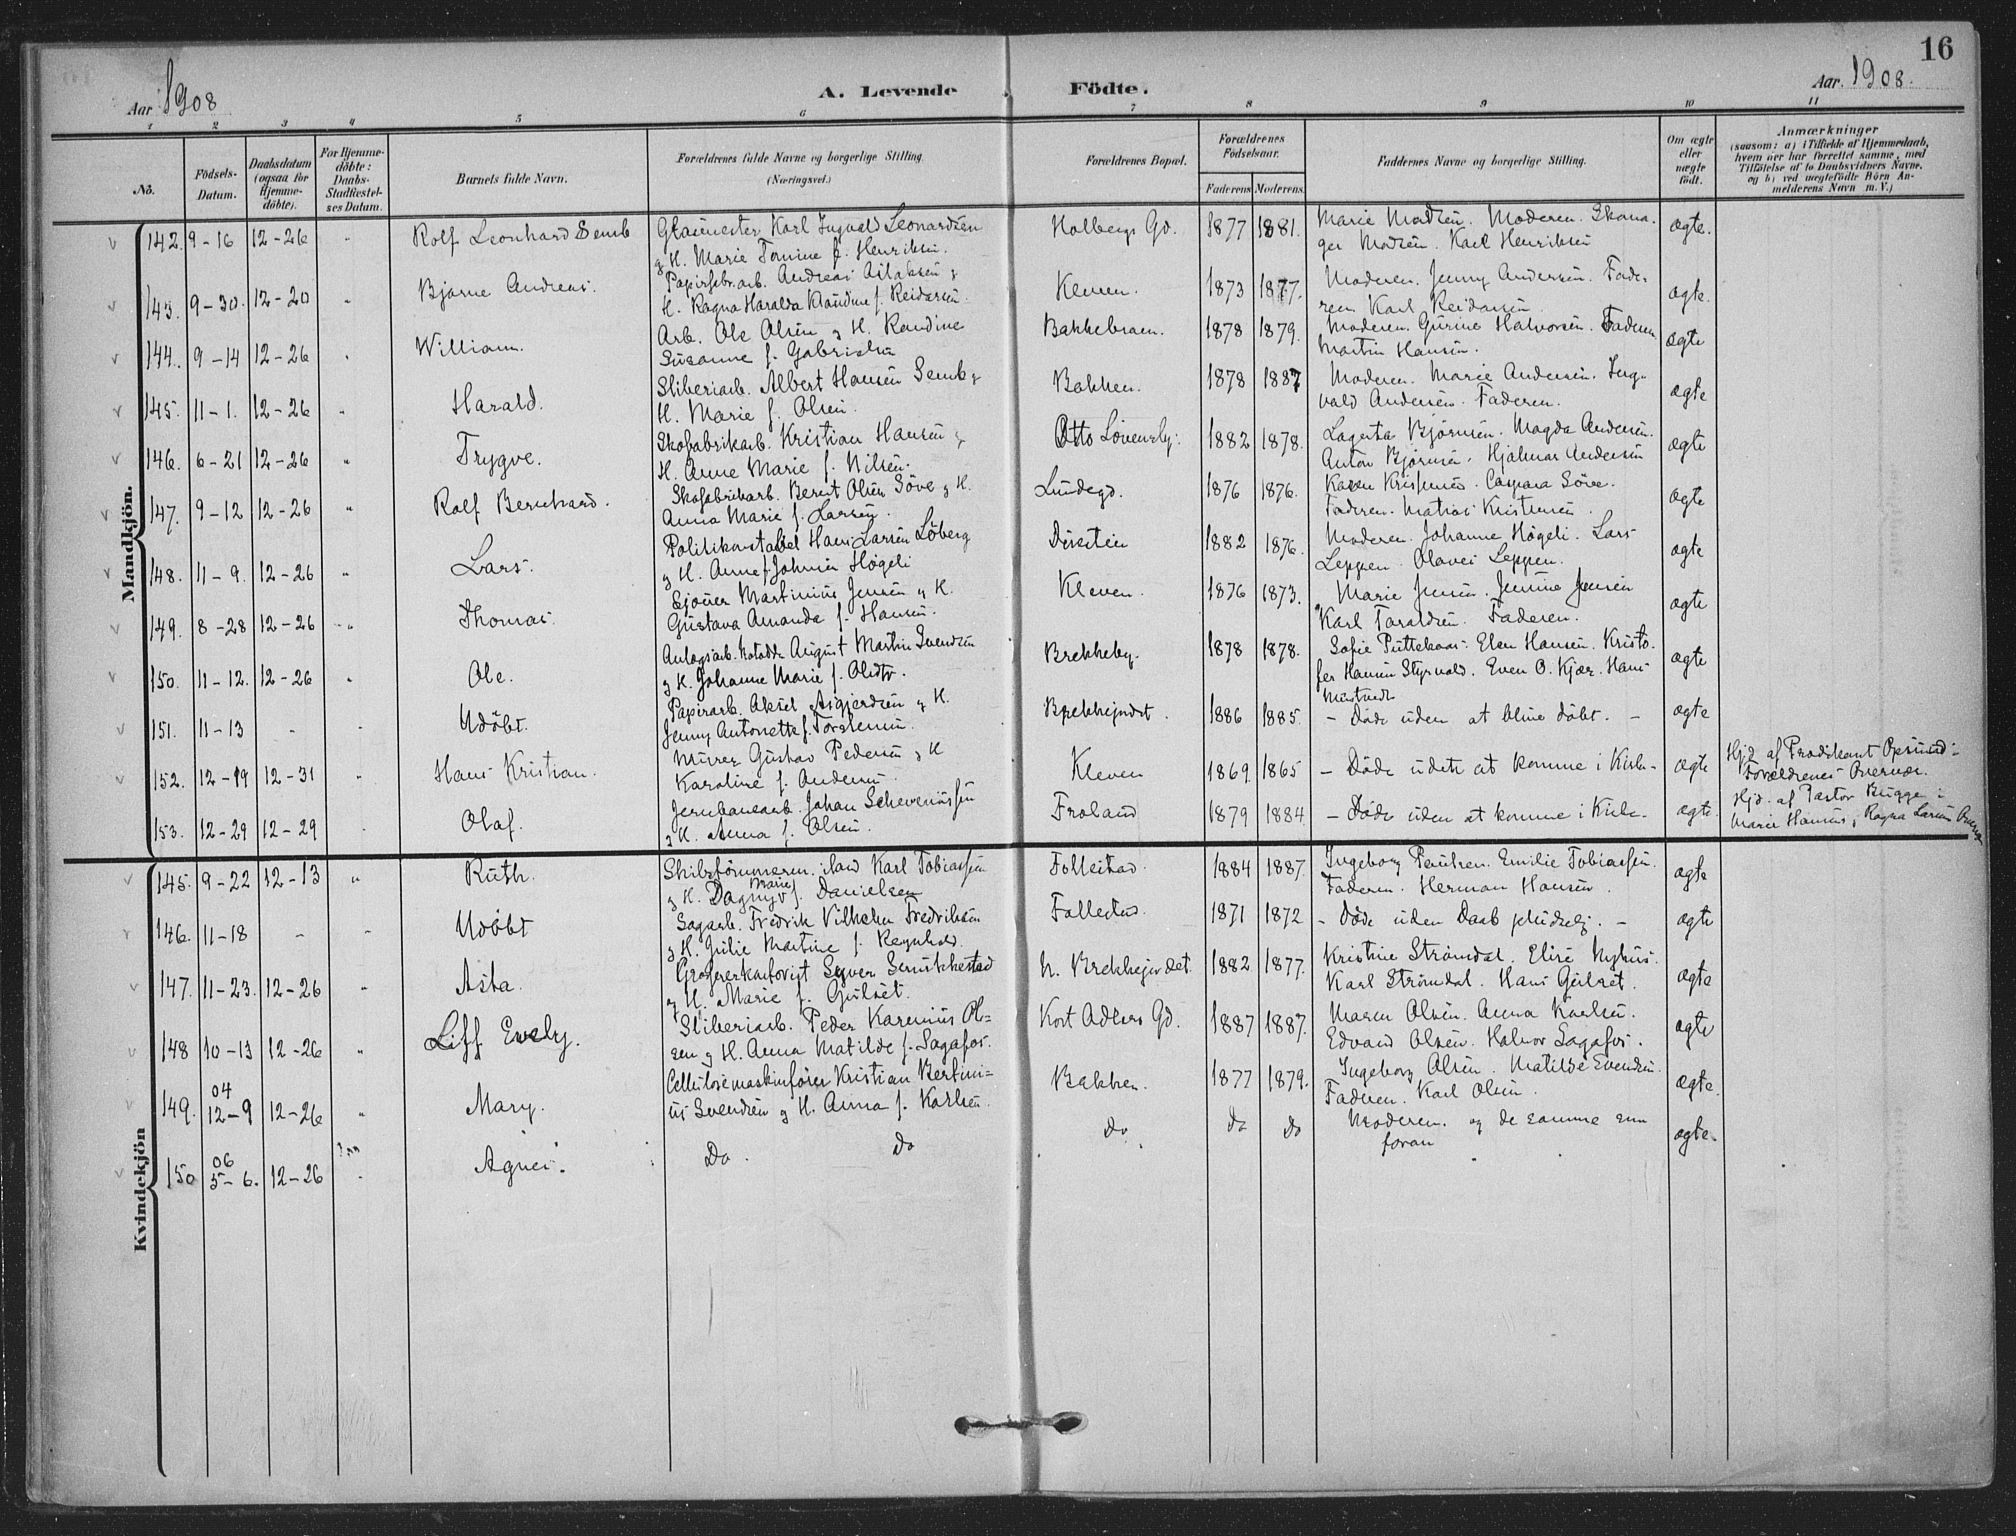 16
Aar 1908
A. Levende Födte.
Aar. 1908.
1 2 3 4 5 6 7 8 9 10 11
No.
Födsels-Datum.
Daabsdatum (ogsaa for Hjemme-döbte).
For Hjemme-döbte: Daabs-Stadfæstel-ses Datum.
Barnets fulde Navn.
Forældrenes fulde Navne og borgerlige Stilling.
(Næringsvei.)
Forældrenes Bopæl.
Forældrenes Födselsaar.
Faderens Moderens.
Faddernes Navne og borgerlige Stilling.
Om ægte eller uægte födt.
Anmærkninger
(saasom: a) i Tilfælde af Hjemmedaab,
hvem der har forrettet samme, med
Tilföielse af to Daabsvidners Navne,
og b) ved uægtefödte Börn An-
melderens Navn m. V.)
Mandkjön.
142. 9-16 12-26 " Rolf Leonhard Semb
Karl Ingvald Leonardsen
g H. Marie Tomine f. Henriksen.
Holbergs Gd. 1877 1881. Marie Madsen. Moderen.
Madsen. Karl Henriksen ægte.
143. 9-30. 12-20 " Bjarne Andreas.
Papirfabr.arb. Andreas g
H. Ragna Haralda Klaudine f. Reidarsen.
Kleven. 1873 1877. Moderen. Jenny Andersen. Fade-
ren Karl Reidarsen ægte.
144. 9-14 12-26 " William.
Arb. Ole Olsen g H. Randine
Susanne f. Gabrielsen
Bakkebraen. 1878 1879. Moderen. Gurine Halvorsen. Faderen
Martin Hansen. ægte
145. 11-1. 12-26 " Harald.
Sliberiarb. Albert Hansen Semb g
H. Marie f. Olsen.
Bakken. 1878 1887 Moderen. Marie Andersen. Ing-
vald Andersen. Faderen. ægte
146. 6-21 12-26 " Trygve.
Skofabrikarb. Kristian Hansen g
H. Anne Marie f. Nilsen.
Otto 1882 1878. Lagerta Bjørnsen. Magda Andersen.
Anton Bjørnsen. Hjalmar Andersen ægte
147. 9-12 12-26 " Rolf Bernhard.
Skofabrikarb. Berent Olsen Söve g H.
Anna Marie f. Larsen.
Lundegd. 1876 1876. Karen Kristensen. Caspara Söve.
Faderen. Matias Kristensen. ægte
148. 11-9. 12-26 " Lars.
Politikonstabel Hans Larsen Löberg
g H. Anne f. Johnsen Høgeli
1882 1876. Moderen. Johanne Høgeli. Lars
Leppen. Olaves Leppen. ægte
149. 8-28 12-26 " Thomas.
Sjöner Martinius Jensen g H.
Gustava Amanda f. Hansen.
Kleven. 1876 1873. Marie Jensen. Jensine Jensen
Karl Taraldsen. Faderen. ægte
150. 11-12. 12-26 " Ole.
Anlægsarb. Notodden August Martin Svendsen
g H. Johanne Marie f. Olsdtr.
Brekkeby. 1878 1878. Sofie Puttekaas. Elen Hansen. Kristo-
fer Hansen Styrvold. Even O. Kjær. Hans
ægte
151. 11-13 - Udöbt.
Papirarb. Aksel Asgjerdsen g H.
Jenny Antonette f. Torstensen.
Brekkejndet. 1886 1885. - Döde uden at blive döbt. - ægte
152. 12-19 12-31 " Hans Kristian.
Murer Gustav Pedersen g H
Karoline f. Andersen
Kleven 1869 1865 - Döde uden at komme i Kirke- ægte
Hjd. af Prædikant Opsund :
Forældrenes Nærvær.
153. 12-29 12-29 Olaf.
Jernbanearb. Johan
g H. Anna f. Olsen.
Froland 1879 1884 - Döde uden at komme i Kirke - ægte
Hjd. af Pastor Bugge :
Marie Hansens, Ragna Larsens
Kvindekjön
145. 9-22 12-13 " Ruth.
Skibstömmerm. iland Karl Tobiassen
g H. Dagny Marie f. Danielsen
Follestad. 1884 1887. Ingeborg Paulsen. Emilie Tobiassen.
Faderen. Herman Hansen. ægte
146. 11-18 - Udöbt
Sagarb. Fredrik Vilhelm Fredriksen
g H. Julie Martine f. Reynhold.
Follestad. 1871 1872 - Döde uden Daab pludselig. - ægte
147. 11-23. 12-26 " Asta.
Syver
g H. Marie f. Gulset.
N. Brekkejordet. 1882 1877. Kristine Strömdal. Elise Nyhus.
Karl Strömdal. Hans Gulset. ægte
148 10-13 12-26 " Liff Evely.
Sliberiarb. Peder Karenius Ol-
sen g H. Anna Matilde f. Sagafos.
Kort Adlers Gd. 1887 1887. Maren Olsen. Anna Karlsen.
Edvard Olsen. Halvor Sagafos. ægte
149. 04 12-9 12-26 " Mary.
Cellulosemaskinförer Kristian Bertini-
us Svendsen g H. Anna f. Karlsen.
Bakken. 1877 1879. Ingeborg Olsen. Matilde Svendsen.
Faderen. Karl Olsen ægte.
150 06 5-6. 12-26 Agnes.
Do. Do Do Do Do Moderen. og de samme som
foran ægte.